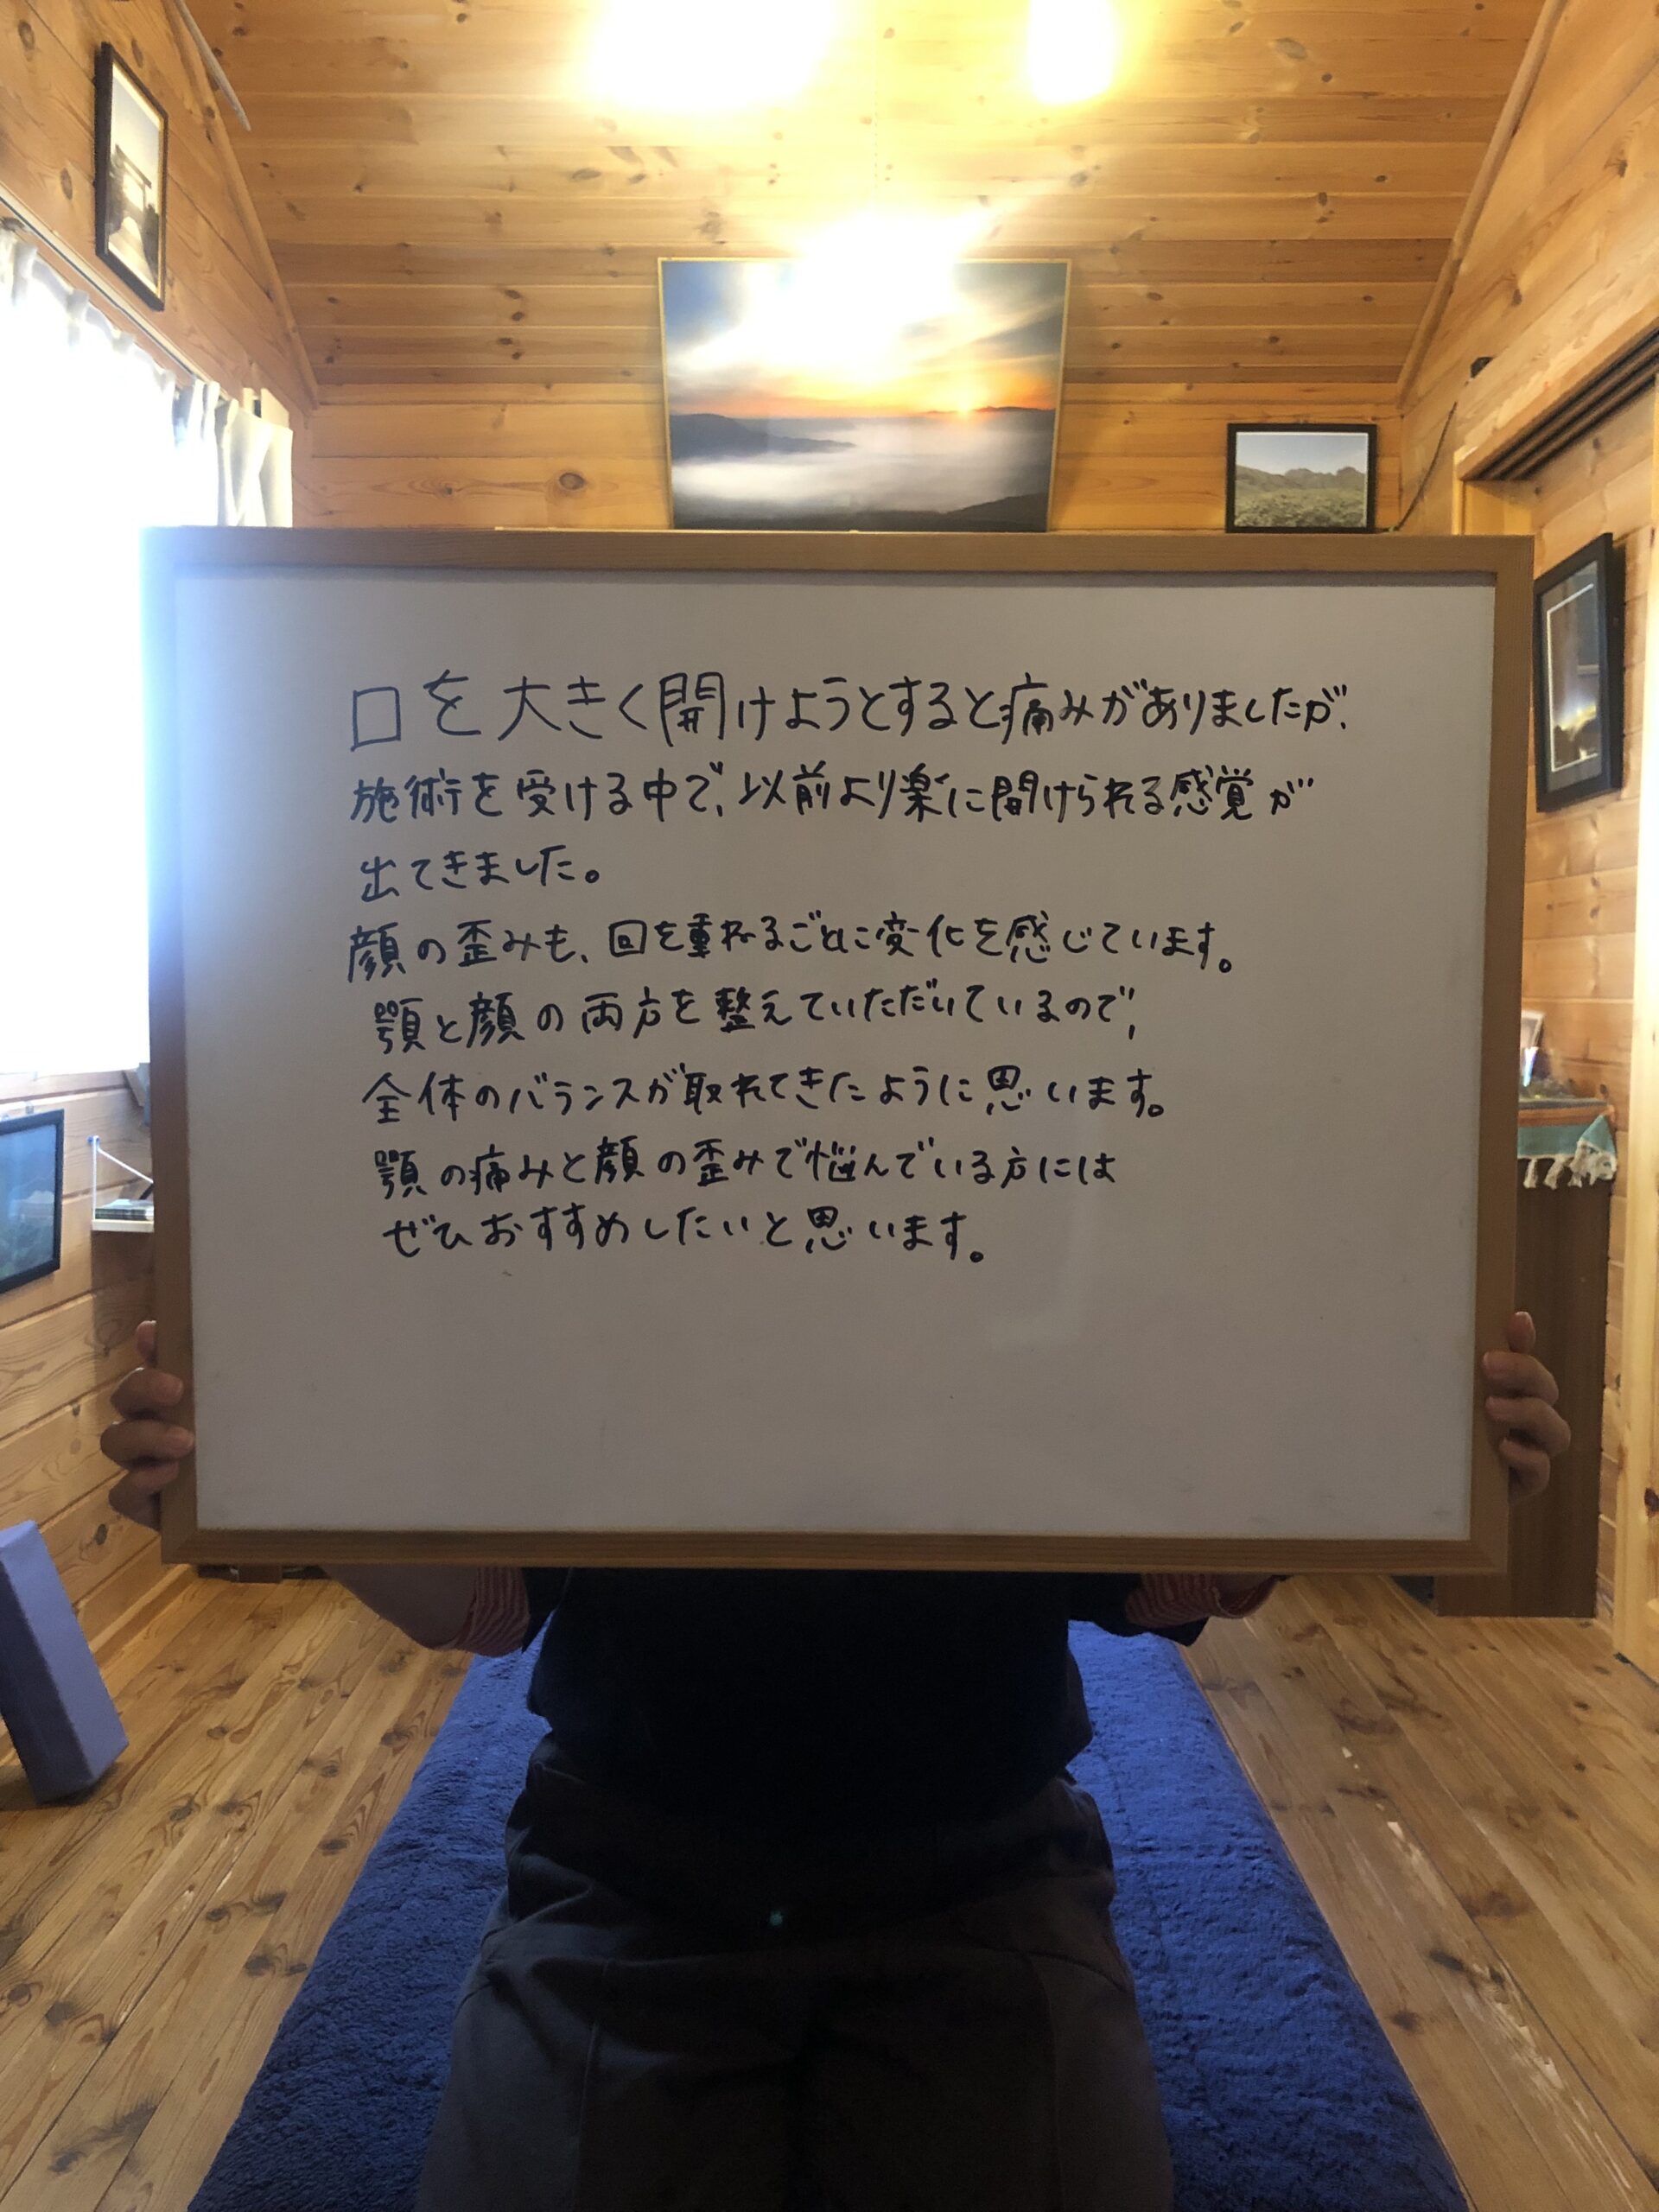 口を大きく開けようとすると痛みがありましたが、
施術を受ける中で、以前より楽に開けられる感覚が
出てきました。
顔の歪みも、回を重ねるごとに変化を感じています。
顎と顔の両方を整えていただいているので、
全体のバランスが取れてきたように思います。
顎の痛みと顔の歪みで悩んでいる方には
ぜひおすすめしたいと思います。